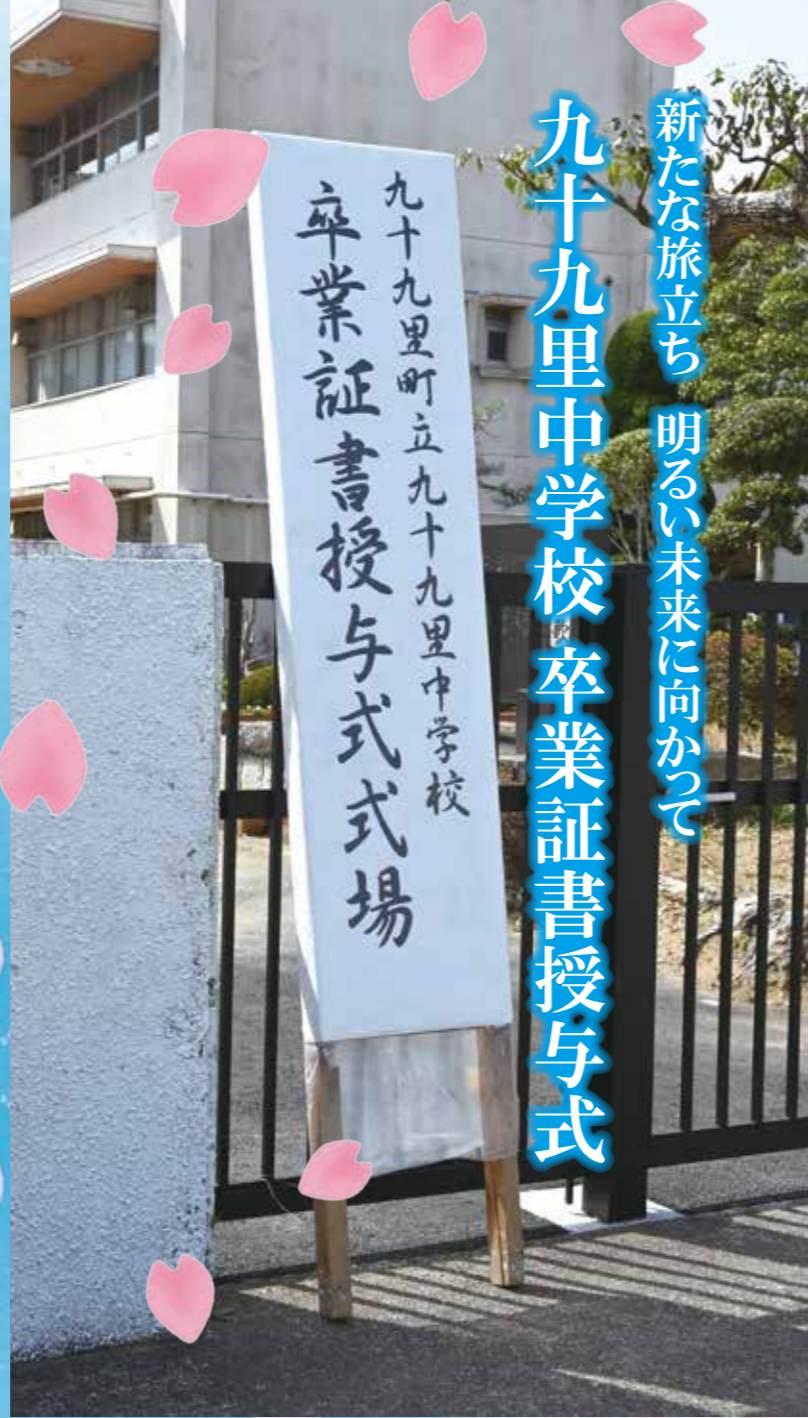 新たな旅立ち　明るい未来に向かって
九十九里中学校 卒業証書授与式
九十九里町立九十九里中学校
卒業証書授与式式場